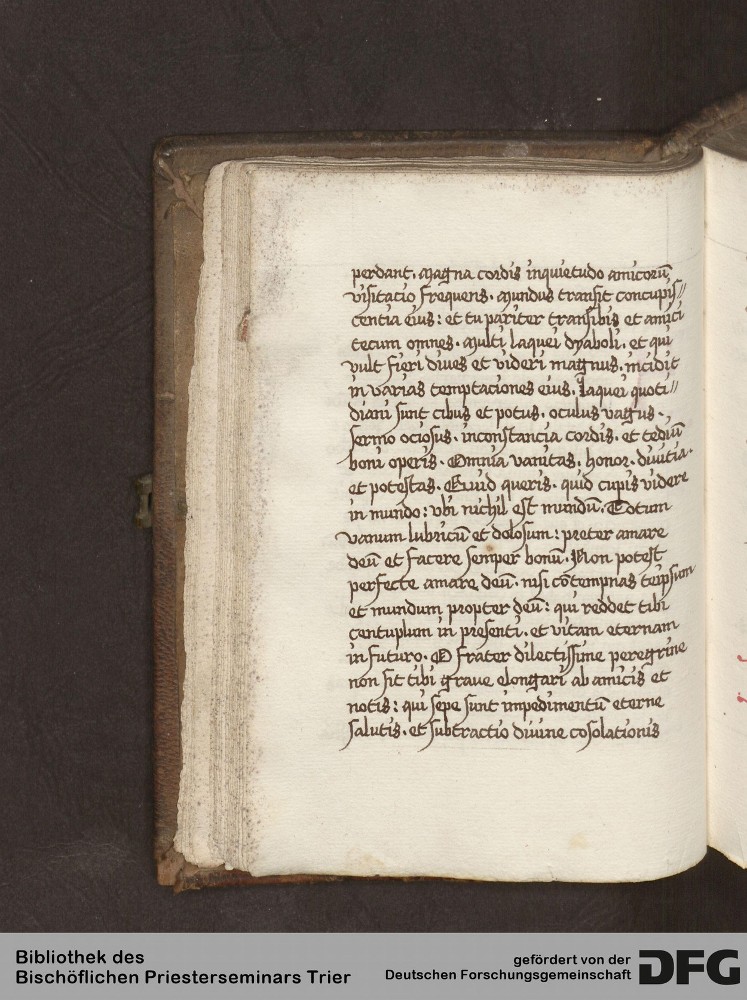 perdant. Magna cordis inquietudo amicorū
visitacio frequens. Mundus transit concupis//
centia eius: et tu pariter transibis et amici
tecum omnes. Multi laquei dyaboli. et qui
vult fieri dives et videri magnus. incidit
in varias temptaciones eius. Laquei quoti//
diani sunt cibus et potus. oculus vagus.
sermo ociosus. inconstancia cordis. et tediū
boni operis. Omnia vanitas. honor. divitia.
et potestas. Quid queris. quid cupis videre
in mundo: vbi nichil est mundū. Totum
vanum lubricū et dolosum: preter amare
deū et facere semper bonū. Non potest
perfecte amare deū. nisi cōtempnas teipsum
et mundum propter deū: qui reddet tibi
centuplum in presenti. et vitam eternam
in futuro. O frater dilectissime peregrine
non sit tibi graue elongari ab amicis et
notis: qui sepe sunt impedimentū eterne
salutis. et subtractio diuine cosolationis
Bibliothek des
Bischöflichen Priesterseminars Trier
gefördert von der
Deutschen Forschungsgemeinschaft
DFG